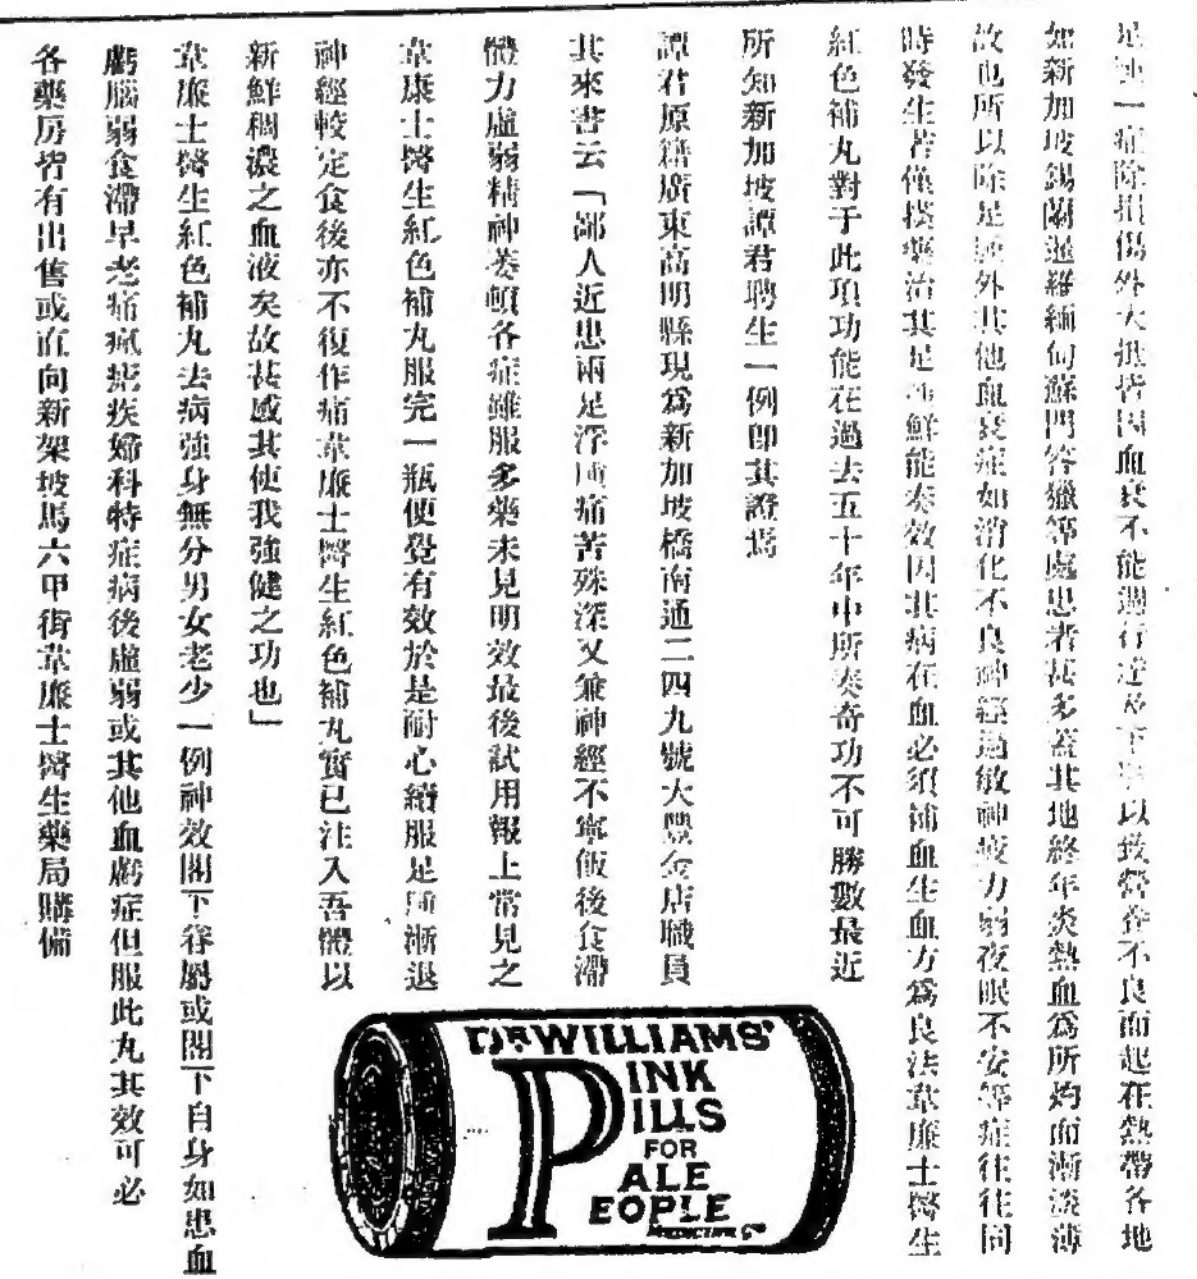 足腫一症除損傷外大抵皆因血衰不能週行達及下以致營養不良而起在熱帶各地
如新加坡錫蘭暹羅緬甸蘇門答臘等處患者甚多蓋其地終年炎熱血爲所灼而漸淡薄
故也所以除足腫外其他血衰症如消化不良神經過敏神疲力弱夜眠不安等症往往同
時發生若僅搽藥治其足腫鮮能奏效因其病在血必須補血生血方爲良法韋廉士醫生
紅色補丸對于此項功能在過去五十年中所奏奇功不可勝數最近
所知新加坡譚君聘生一例卽其證焉
譚君原籍廣東高明縣現爲新加坡橋南通二四九號大豐金店職員
其來書云「鄙人近患兩足浮腫痛苦殊深又兼神經不寧飯後食滯
體力虛弱精神萎頓各症雖服多藥未見明效最後試用報上常見之
韋廉士醫生紅色補丸服完一瓶便覺有效於是耐心續服足腫漸退
神經較定食後亦不復作痛韋廉士醫生紅色補丸實已注入吾體以
新鮮稠濃之血液矣故甚感其使我強健之功也」
韋廉士醫生紅色補丸去病強身無分男女老少一例神效閣下眷屬或閣下自身如患血
虧腦弱食滯早老痛瘋瘧疾婦科特症病後虛弱或其他血虧症但服此丸其效可必
各藥房皆有出售或直向新架坡馬六甲街韋廉士醫生藥局購備
DR WILLIAMS'
PINK
PILLS
FOR
PALE
PEOPLE
MEDICINE Co